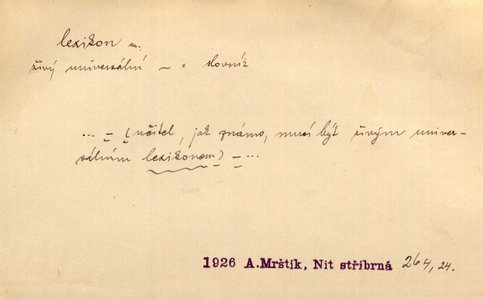 lexikon m.
živý universální – = slovník
... – (učitel, jak známo, musí být živým univer-
sálním lexikonem) – ...
1926 A.Mrštík, Nit stříbrná 264, 24.